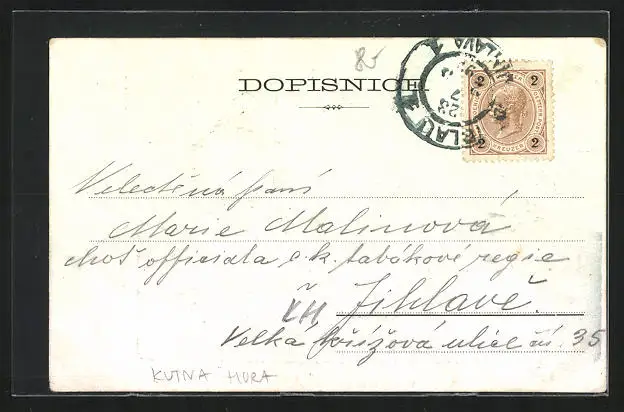 80
DOPISNICE
IGLAU 1
JIHLAVA 1
2 2
2 2
KREUZER
Velectěná paní
Marie Malinová
choť officiala c. k. tabákové regie
KH
Jihlavě.
Velká křížová ulice čís. 35
KUTNA HORA